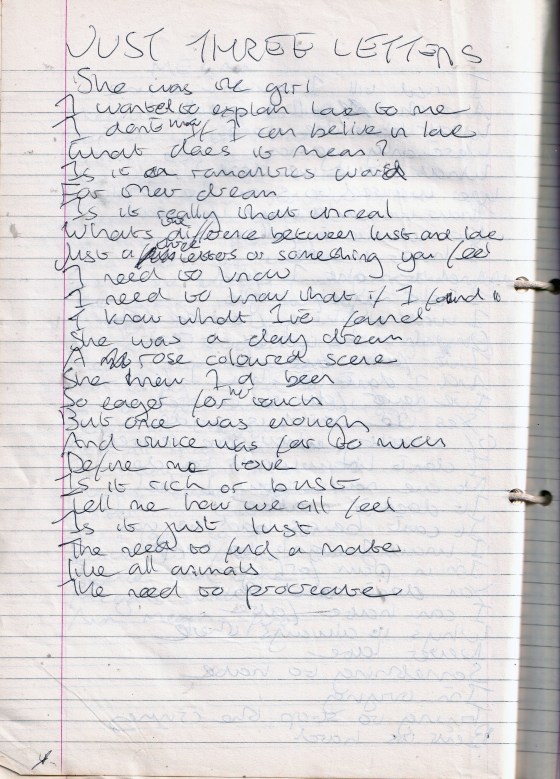 JUST THREE LETTERS
She was the girl
I wanted to explain love to me
I dont know if I can belive in love
What does it mean?
Is it a romantics words
For their dream
Is it really that unreal
Whats the difference between lust and love
Just a three letters or something you feel
I need to know
I need to know that if I found it
I know what I've found
She was a day dream
A rose coloured scene
She knew I'd been
So eager for her touch
But once was enough
And twice was far to much
Define me love
Is it rich or bust
Tell me how we all feel
Is it just lust
The need to find a mate
like all animals
The need to procreate